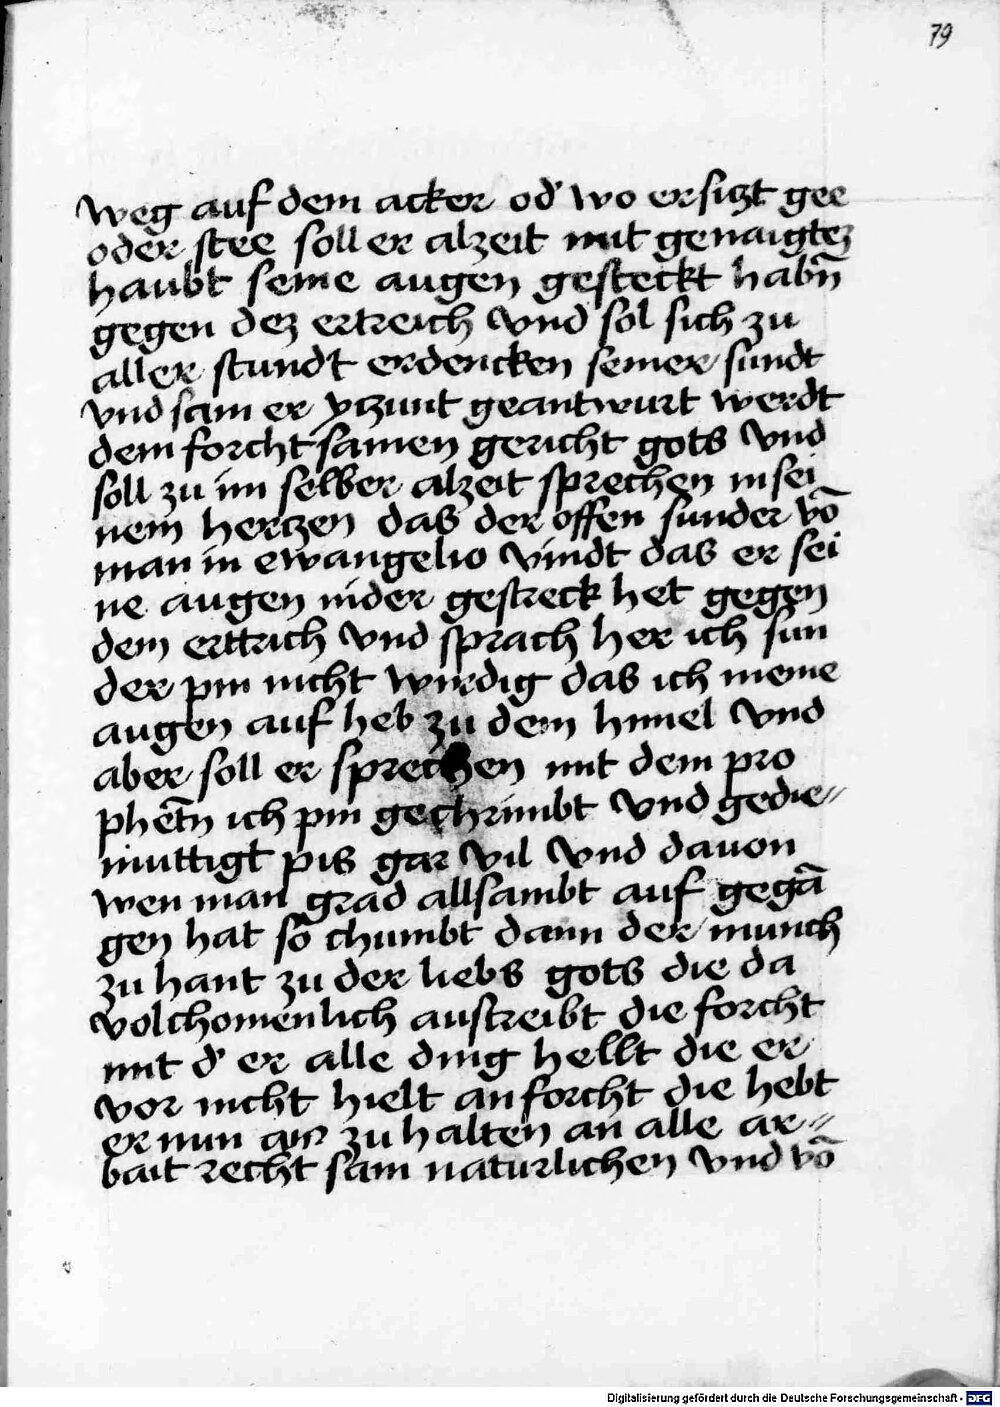 79
weg auf dem acker od' wo er sitzt gee
oder stee soll er alzeit mit genaigtez
haubt seine augen gesteckt habn̄
gegen dez ertreich vnd sol sich zu
aller stundt erdencken seiner sundt
vnd sam er yczunt geantwurt werdt
dem forchtsamen gericht gots vnd
soll zu im selber alzeit sprechen in sei
nem herczen das der offen sunder vō
man in ewangelio vindt das er sei
ne augen nider gestreck het gegen
dem erttrich vnd sprach her ich sun
der pin nicht wirdig das ich meine
augen auf heb zu dem himel vnd
aber soll er sprechen mit dem pro
phetn̄ ich pin gechrimbt vnd gedie//
muttigt pis gar vil vnd davon
wen man grad allsambt auf gegā
gen hat so chumbt dann der munch
zu hant zu der liebs gots die da
volchomenlich austreibt die forcht
mit d' er alle ding hellt die er
vor nicht hielt an forcht die hebt
er nun an zu halten an alle ar//
bait recht sam naturlichen vnd vō
Digitalisierung gefördert durch die Deutsche Forschungsgemeinschaft - DFG